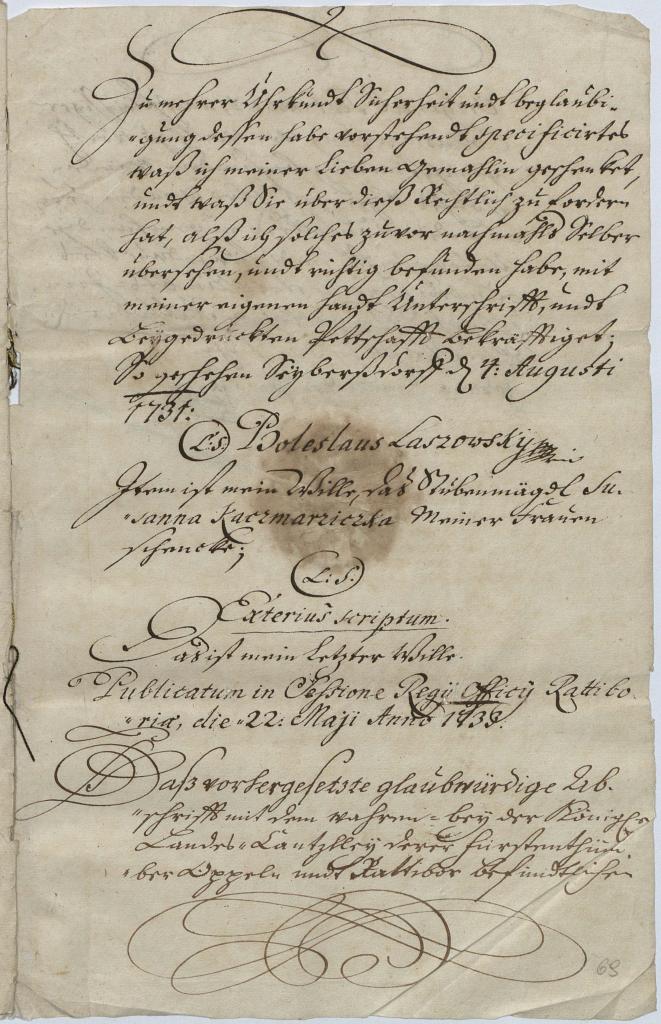 Zu mehrer Uhrkundt Sicherheit undt beglaubi-
-gung dessen habe vorstehendt specificirtes
waß ich meiner Lieben Gemahlin geschenket,
undt waß Sie über dieß Rechtlich zu fordern
hat, alß ich solches zuvor nachmahls Selber
übersehen, undt richtig befunden habe, mit
meiner eigenen Handt Unterschrifft, undt
Beygedruckten Pettschafft bekräfftiget;
So geschehen Seyberßdorff d 4: Augusti
1731:
(L:S) Boleslaus Laszowsky
Item ist mein Wille, das Stubenmägdl Su-
-sanna Kaczmarziczka Meiner Frauen
schencke;
(L:S.)
Exterius scriptum.
Das ist mein Letzter Wille.
Publicatum in Sessione Regij Officij Rattibo
-riæ, die 22: Maji Anno 1733.
Daß vorhergesetzte glaubwürdige Ab-
-schrifft mit dem wahren - bey der Königl
Landes-Cantzlley derer Fürstenthüm
-ber Oppeln undt Rattibor befindtlichen
69